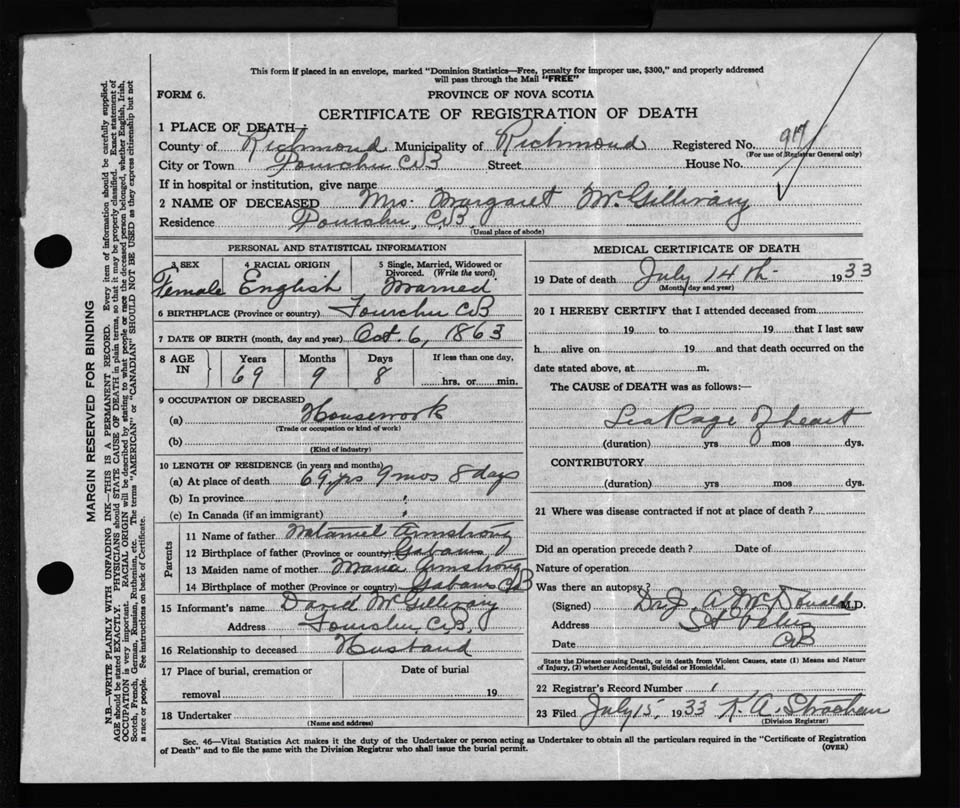 This form if placed in an envelope, marked "Dominion Statistics—Free, penalty for improper use, $300," and properly addressed
will pass through the Mail "FREE"
FORM 6.
PROVINCE OF NOVA SCOTIA
CERTIFICATE OF REGISTRATION OF DEATH
1 PLACE OF DEATH—
County of Richmond Municipality of Richmond Registered No. 97
(For use of Registrar General only)
City or Town Fourchu CB Street House No.
If in hospital or institution, give name
2 NAME OF DECEASED Mrs. Margaret McGillivary
Residence Fourchu, C.B.
(Usual place of abode)
PERSONAL AND STATISTICAL INFORMATION
3 SEX 4 RACIAL ORIGIN 5 Single, Married, Widowed or
Divorced. (Write the word)
Female English Married
6 BIRTHPLACE (Province or country) Fourchu CB
7 DATE OF BIRTH (month, day and year) Oct. 6, 1863
8 AGE IN Years Months Days If less than one day,
69 9 8 hrs. or min.
9 OCCUPATION OF DECEASED
(a) Housework
(Trade or occupation or kind of work)
(b)
(Kind of industry)
10 LENGTH OF RESIDENCE (in years and months)
(a) At place of death 69 yrs 9 mos 8 days
(b) In province
(c) In Canada (if an immigrant)
Parents
11 Name of father Armstrong
12 Birthplace of father (Province or country) Gabarus
13 Maiden name of mother Maria Armstrong
14 Birthplace of mother (Province or country) Gabarus CB
15 Informant's name David McGillivary
Address Fourchu, C.B,
16 Relationship to deceased Husband
17 Place of burial, cremation or Date of burial
removal 19
18 Undertaker
(Name and address)
MEDICAL CERTIFICATE OF DEATH
19 Date of death July 14th 1933
(Month, day and year)
20 I HEREBY CERTIFY that I attended deceased from
19 to 19 that I last saw
h alive on 19 and that death occurred on the
date stated above, at m.
The CAUSE of DEATH was as follows:—
Leakage of heart
(duration) yrs mos dys.
CONTRIBUTORY
(duration) yrs. mos. dys.
21 Where was disease contracted if not at place of death?
Did an operation precede death? Date of
Nature of operation
Was there an autopsy?
(Signed) Dr. J. A. McDonald M.D.
Address St Peters
Date CB
State the Disease causing Death, or in death from Violent Causes, state (1) Means and Nature
of Injury, (2) whether Accidental, Suicidal or Homicidal.
22 Registrar's Record Number
23 Filed July 15, 1933 K. A. Strachan
(Division Registrar)
Sec. 46—Vital Statistics Act makes it the duty of the Undertaker or person acting as Undertaker to obtain all the particulars required in the "Certificate of Registration
of Death" and to file the same with the Division Registrar who shall issue the burial permit.
(OVER)
MARGIN RESERVED FOR BINDING
N.B.—WRITE PLAINLY WITH UNFADING INK—THIS IS A PERMANENT RECORD. Every item of information should be carefully supplied.
AGE should be stated EXACTLY. PHYSICIANS should STATE CAUSE OF DEATH in plain terms, so that it may be properly classified. Exact statement of
OCCUPATION is very important. RACIAL ORIGIN will be described by stating to what people or race the deceased person belonged, whether English, Irish,
Scotch, French, German, Russian, Ruthenian, etc. The terms "AMERICAN" or "CANADIAN" SHOULD NOT BE USED as they express citizenship but not
a race or people. See instructions on back of Certificate.